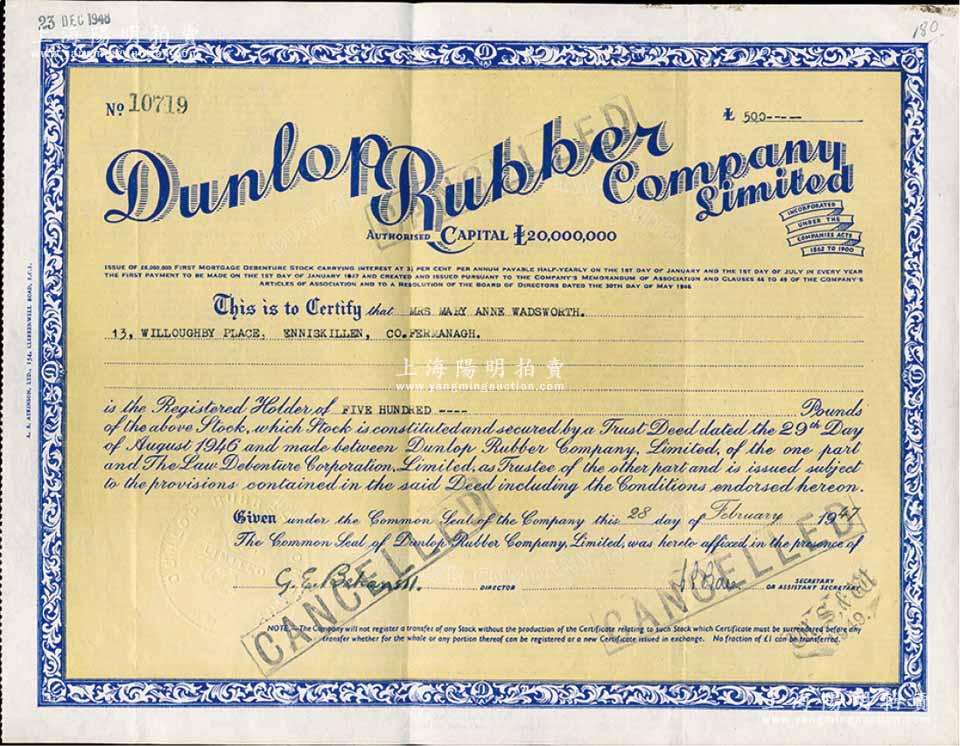 23 DEC 1948
180
上海陽明拍賣
www.yangmingauction.com
No 10719
£ 500-----
Dunlop Rubber Company Limited
INCORPORATED
UNDER THE
COMPANIES ACTS
1862 TO 1900
AUTHORISED CAPITAL £20,000,000
ISSUE OF £8,000,000 FIRST MORTGAGE DEBENTURE STOCK CARRYING INTEREST AT 3½ PER CENT PER ANNUM PAYABLE HALF-YEARLY ON THE 1ST DAY OF JANUARY AND THE 1ST DAY OF JULY IN EVERY YEAR
THE FIRST PAYMENT TO BE MADE ON THE 1ST DAY OF JANUARY 1947 AND CREATED AND ISSUED PURSUANT TO THE COMPANY'S MEMORANDUM OF ASSOCIATION AND CLAUSES 46 TO 49 OF THE COMPANY'S
ARTICLES OF ASSOCIATION AND TO A RESOLUTION OF THE BOARD OF DIRECTORS DATED THE 30TH DAY OF MAY 1946
This is to Certify that MRS MARY ANNE WADSWORTH.
13, WILLOUGHBY PLACE, ENNISKILLEN, CO.FERMANAGH.
上海陽明拍賣
www.yangmingauction.com
is the Registered Holder of FIVE HUNDRED ---- Pounds
of the above Stock, which Stock is constituted and secured by a Trust Deed dated the 29th Day
of August 1946 and made between Dunlop Rubber Company, Limited, of the one part
and The Law Debenture Corporation, Limited, as Trustee of the other part and is issued subject
to the provisions contained in the said Deed including the Conditions endorsed hereon.
Given under the Common Seal of the Company this 28 day of February 1947
The Common Seal of Dunlop Rubber Company, Limited, was hereto affixed in the presence of
DIRECTOR
SECRETARY
OR ASSISTANT SECRETARY
NOTE.—The Company will not register a transfer of any Stock without the production of the Certificate relating to such Stock which Certificate must be surrendered before any
transfer whether for the whole or any portion thereof can be registered or a new Certificate issued in exchange. No fraction of £1 can be transferred.
CANCELLED
CANCELLED
CANCELLED
上海陽明拍賣
www.yangmingauction.com